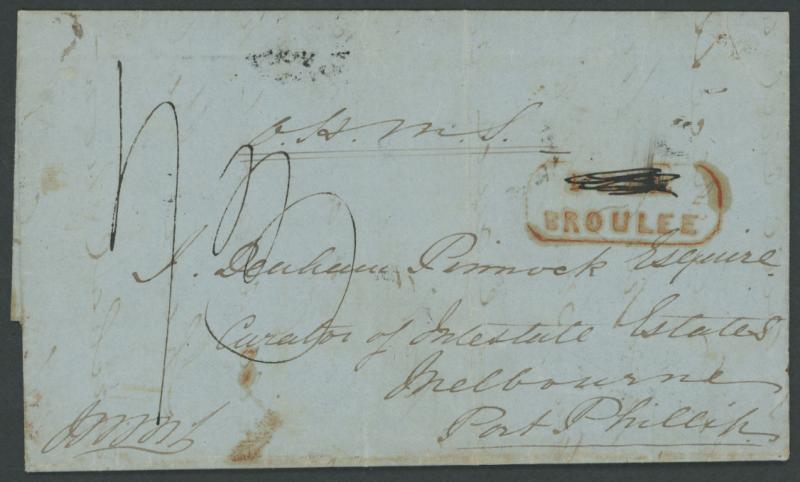 O. H. M. S.
BROULEE
J. Denham Pinnock Esquire
Curator of Intestate Estates
Melbourne
Port Phillip